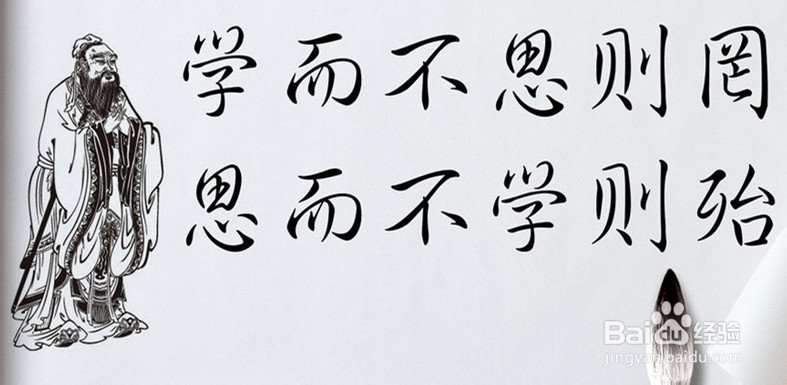 学而不思则罔
思而不学则殆
Baidu经验
jingyan.baidu.com